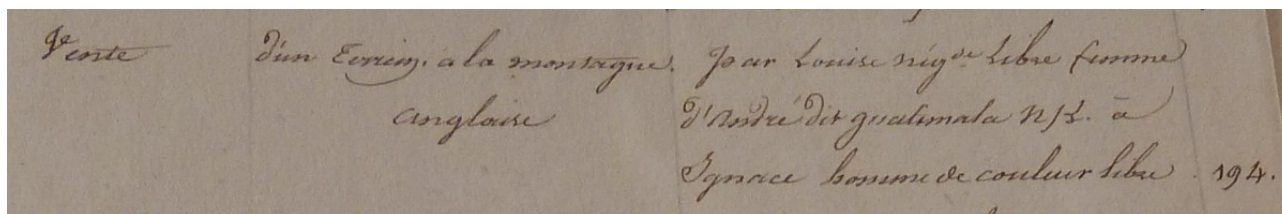 Vente d'un Terrein. a la montagne. par Louise nég.sse libre femme
anglaise d'André dit guatimala N L. à
Ignace homme de couleur libre . 194.